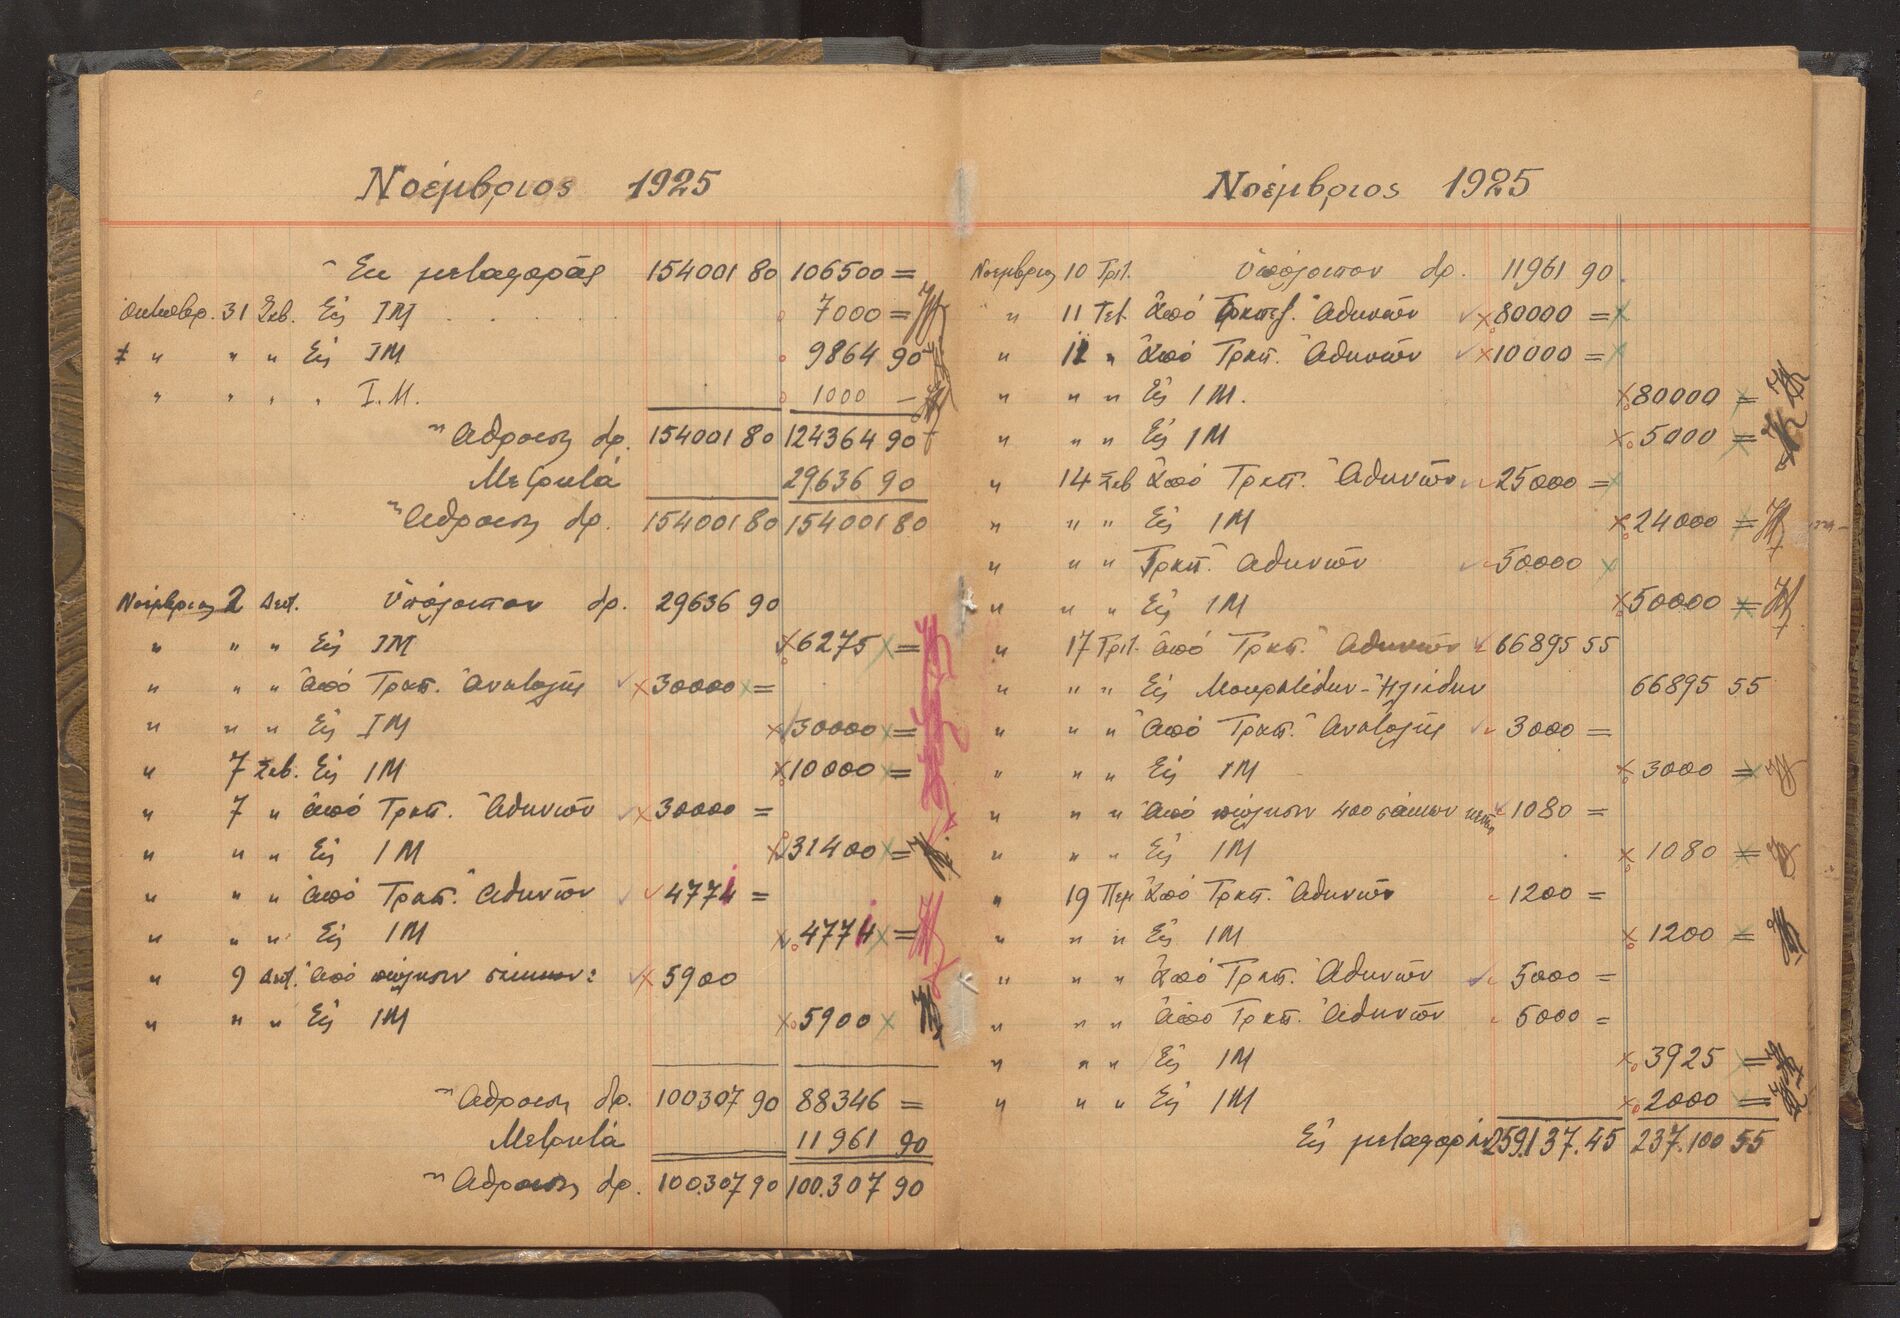 Νοέμβριος 1925
Ἐκ μεταφορᾶς 154001 80 106500 =
Οκτωβρ. 31 Σαβ. Εἰς ΙΜ 7000 =
" " " Εἰς ΙΜ 9864 90
" " " " Ι.Μ. 1000 –
Ἄθροιση δρ. 154001 80 124364 90
Μετρητά 29636 90
Ἄθροιση δρ. 154001 80 154001 80
Νοέμβριος 2 Δευτ. Ὑπόλοιπον δρ. 29636 90
" " " Εἰς ΙΜ 6275 =
" " " Ἀπό Τραπ. Ἀνατολῆς 30000 =
" " " Εἰς ΙΜ 30000 =
" 7 Σαβ. Εἰς ΙΜ 10000 =
" 7 " Ἀπό Τραπ. Ἀθηνῶν 30000 =
" " " Εἰς ΙΜ 31400 =
" " " Ἀπό Τραπ. Ἀθηνῶν 4771 =
" " " Εἰς ΙΜ 4771 =
" 9 Δευτ. Ἀπό πώλησιν σάκκων 5900
" " " Εἰς ΙΜ 5900
Ἄθροιση δρ. 100.307 90 88346 =
Μετρητά 11961 90
Ἄθροιση δρ. 100.307 90 100.307 90
Νοέμβριος 1925
Νοέμβριος 10 Τρίτ. Ὑπόλοιπον δρ. 11961 90.
" 11 Τετ. Ἀπό Τραπεζ. Ἀθηνῶν 80000 =
" 11 " Ἀπό Τραπ. Ἀθηνῶν 10000 =
" " " Εἰς ΙΜ. 80000 =
" " " Εἰς ΙΜ 5000 =
" 14 Σαβ Ἀπό Τραπ. Ἀθηνῶν 25000 =
" " " Εἰς ΙΜ 24000 =
" " " Τραπ. Ἀθηνῶν 50000
" " " Εἰς ΙΜ 50000 =
" 17 Τρίτ. Ἀπό Τραπ. Ἀθηνῶν 66895 55
" " " Εἰς 66895 55
" " " Ἀπό Τραπ. Ἀνατολῆς 3000 =
" " " Εἰς ΙΜ 3000 =
" " " Ἀπό πώλησιν 400 σάκκων 1080 =
" " " Εἰς ΙΜ 1080 =
" 19 Πεμ Ἀπό Τραπ. Ἀθηνῶν 1200 =
" " " Εἰς ΙΜ 1200 =
" " " Ἀπό Τραπ. Ἀθηνῶν 5000 =
" " " Ἀπό Τραπ. Ἀθηνῶν 5000 =
" " " Εἰς ΙΜ 3925 =
" " " Εἰς ΙΜ 2000 =
Εἰς μεταφοράν 259.137.45 237.100 55